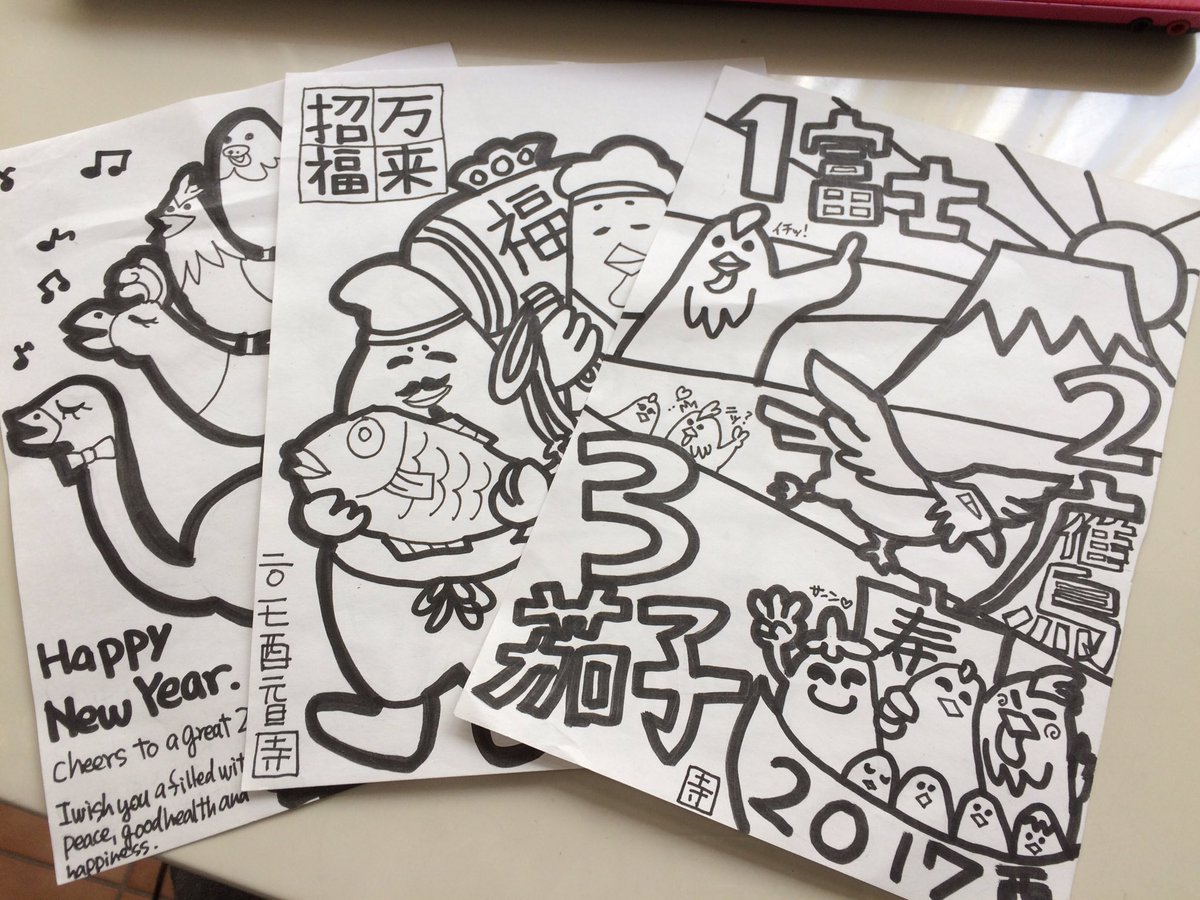 Happy
New Year.
cheers to a great 2
I wish you a filled wit
peace, good health and
happiness.
万来
招福
福
二〇一七酉元旦
寺
1富士
イチッ!
2鷹
ニッ?
3茄子
サーン♡
寿
寺
2017酉